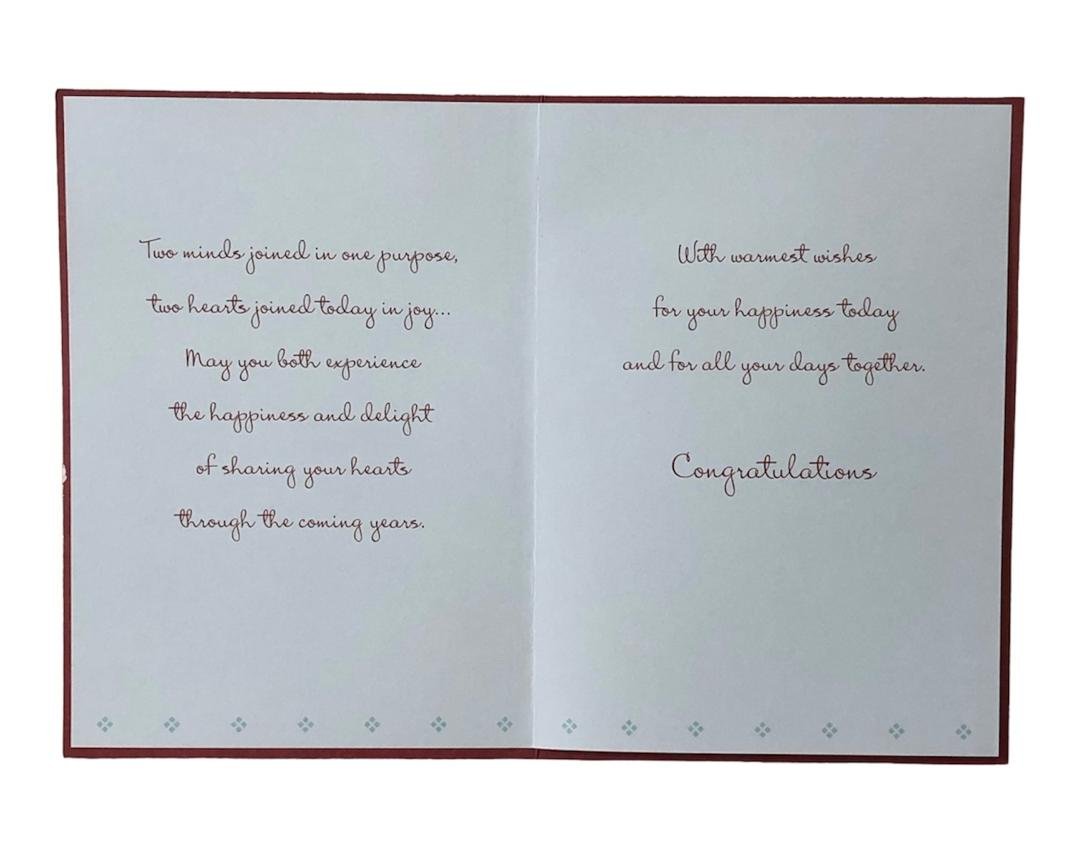 Two minds joined in one purpose,
two hearts joined today in joy...
May you both experience
the happiness and delight
of sharing your hearts
through the coming years.
With warmest wishes
for your happiness today
and for all your days together.
Congratulations